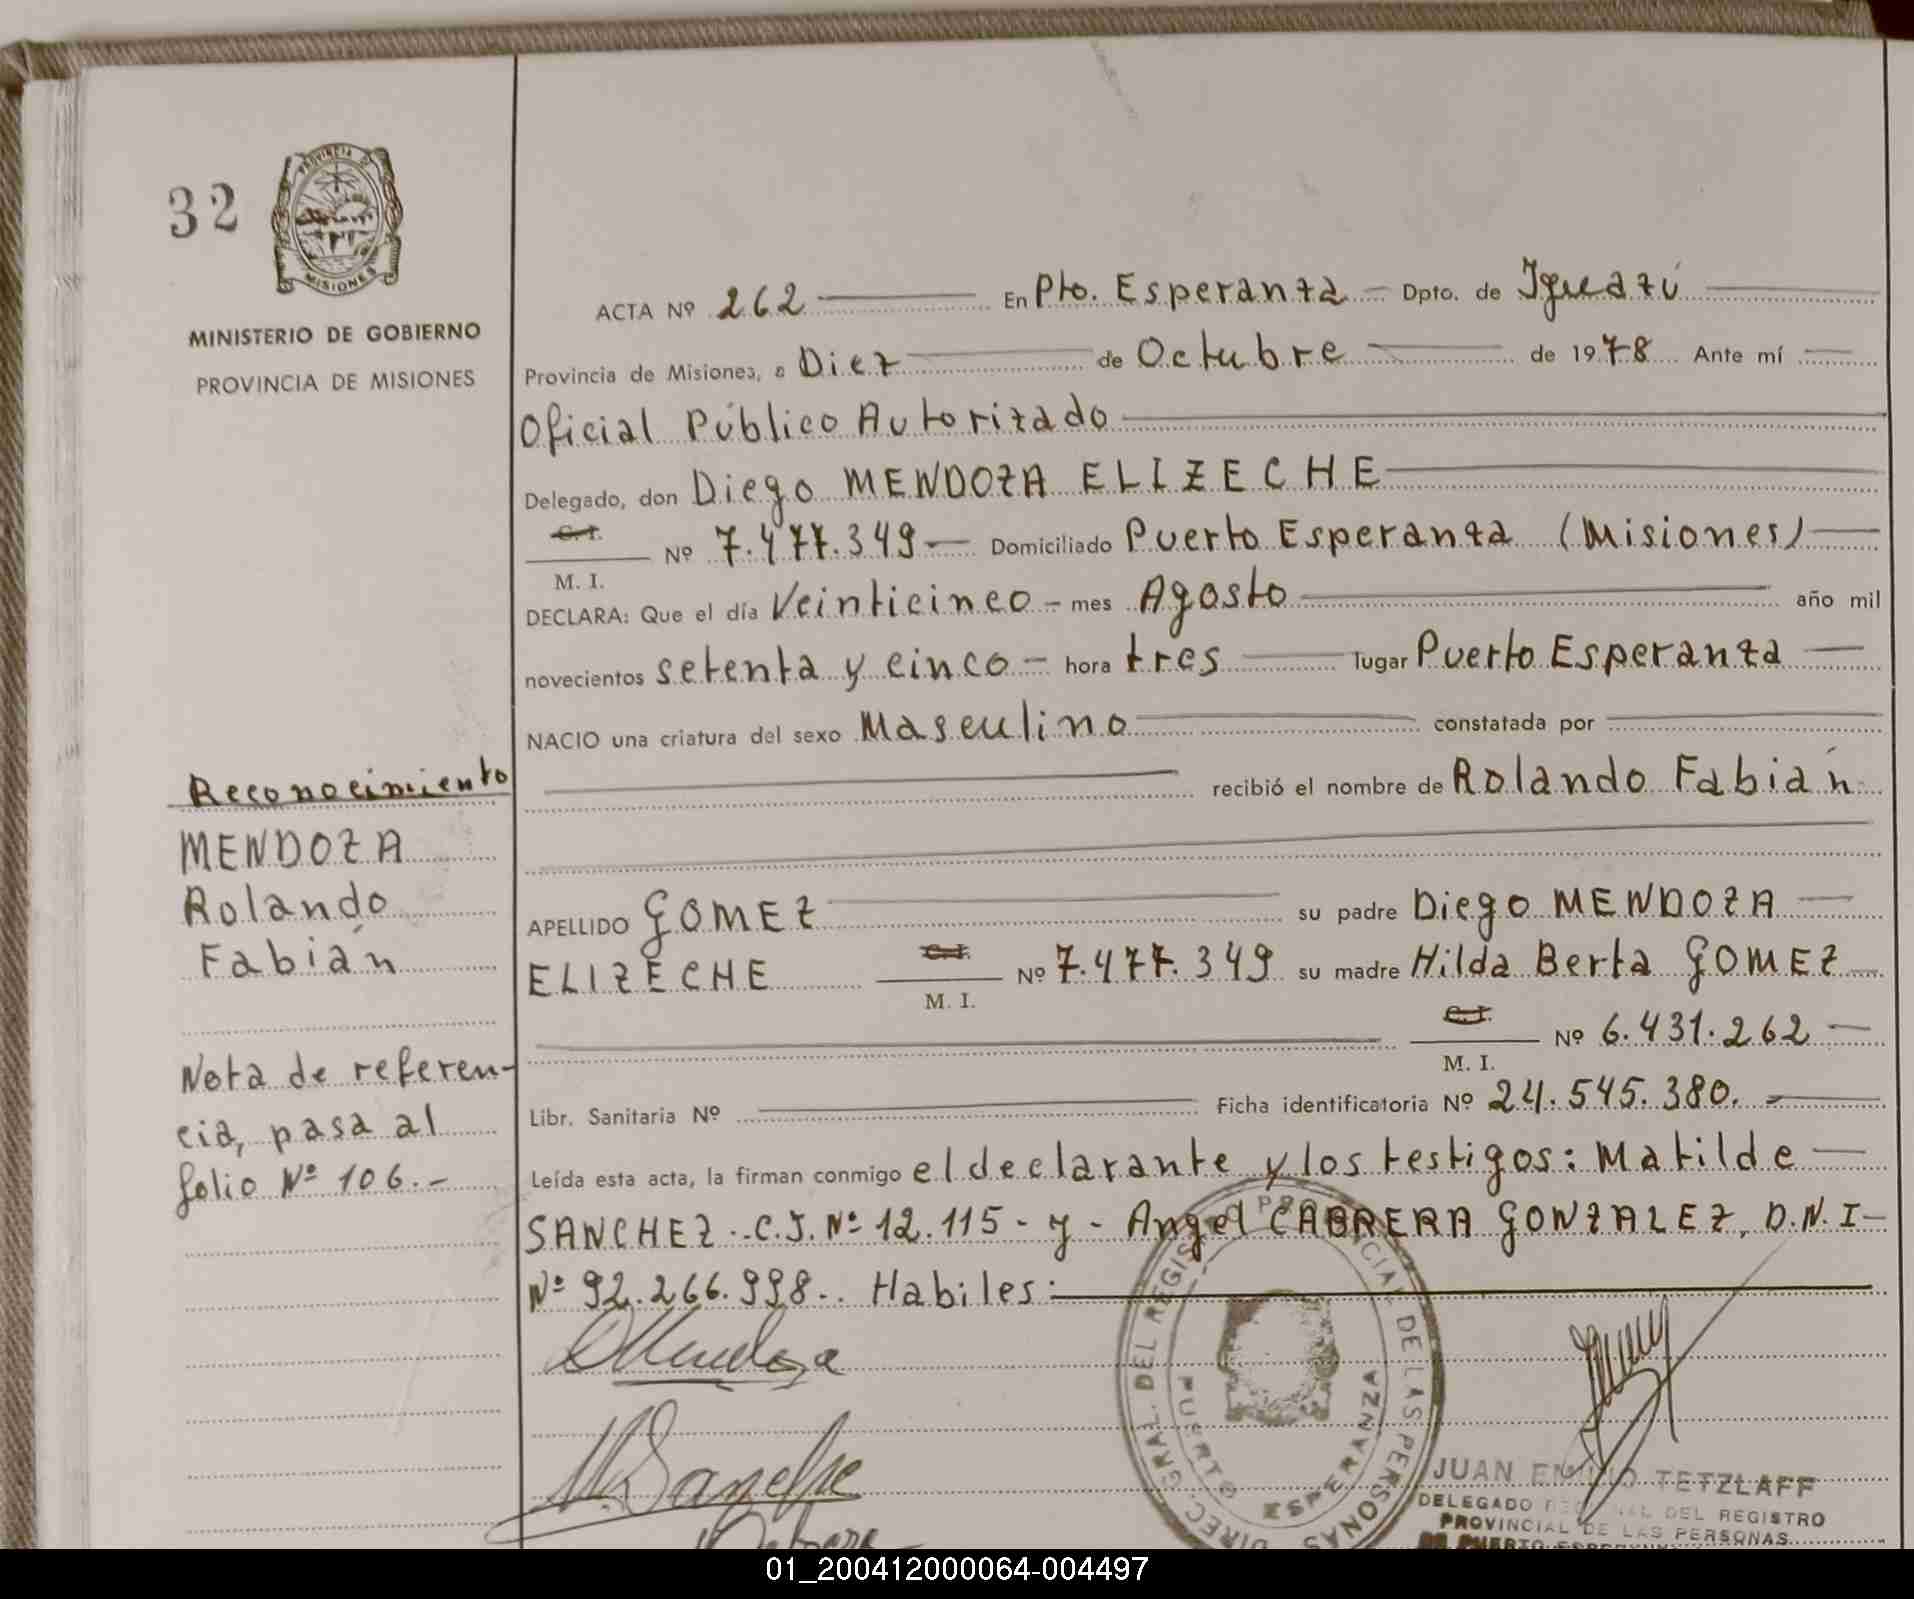 32
PROVINCIA D
MISIONES
MINISTERIO DE GOBIERNO
PROVINCIA DE MISIONES
ACTA Nº 262 En Pto. Esperanza Dpto. de Iguazú
Provincia de Misiones, a Diez de Octubre de 1978 Ante mí
Oficial Público Autorizado
Delegado, don Diego MENDOZA ELIZECHE
C.I.
M. I. Nº 7.477.349 Domiciliado Puerto Esperanza (Misiones)
DECLARA: Que el día Veinticinco mes Agosto año mil
novecientos setenta y cinco hora tres lugar Puerto Esperanza
NACIO una criatura del sexo Masculino constatada por
recibió el nombre de Rolando Fabián
APELLIDO GOMEZ su padre Diego MENDOZA
ELIZECHE C.I. M. I. Nº 7.477.349 su madre Hilda Berta GOMEZ
C.I. M. I. Nº 6.431.262
Libr. Sanitaria Nº Ficha identificatoria Nº 24.545.380.
Leída esta acta, la firman conmigo el declarante y los testigos: Matilde
SANCHEZ.-C.I. Nº 12.115 - y - Angel CABRERA GONZALEZ, D.N.I-
Nº 92.266.998.. Habiles:
Reconocimiento
MENDOZA
Rolando
Fabián
Nota de referen-
cia, pasa al
folio Nº 106.-
DMendoza
MSanche
DIREC. GRAL. DEL REGISTRO PROVINCIAL DE LAS PERSONAS
PUERTO ESPERANZA
JUAN EMILIO TETZLAFF
DELEGADO REGIONAL DEL REGISTRO
PROVINCIAL DE LAS PERSONAS
01_200412000064-004497